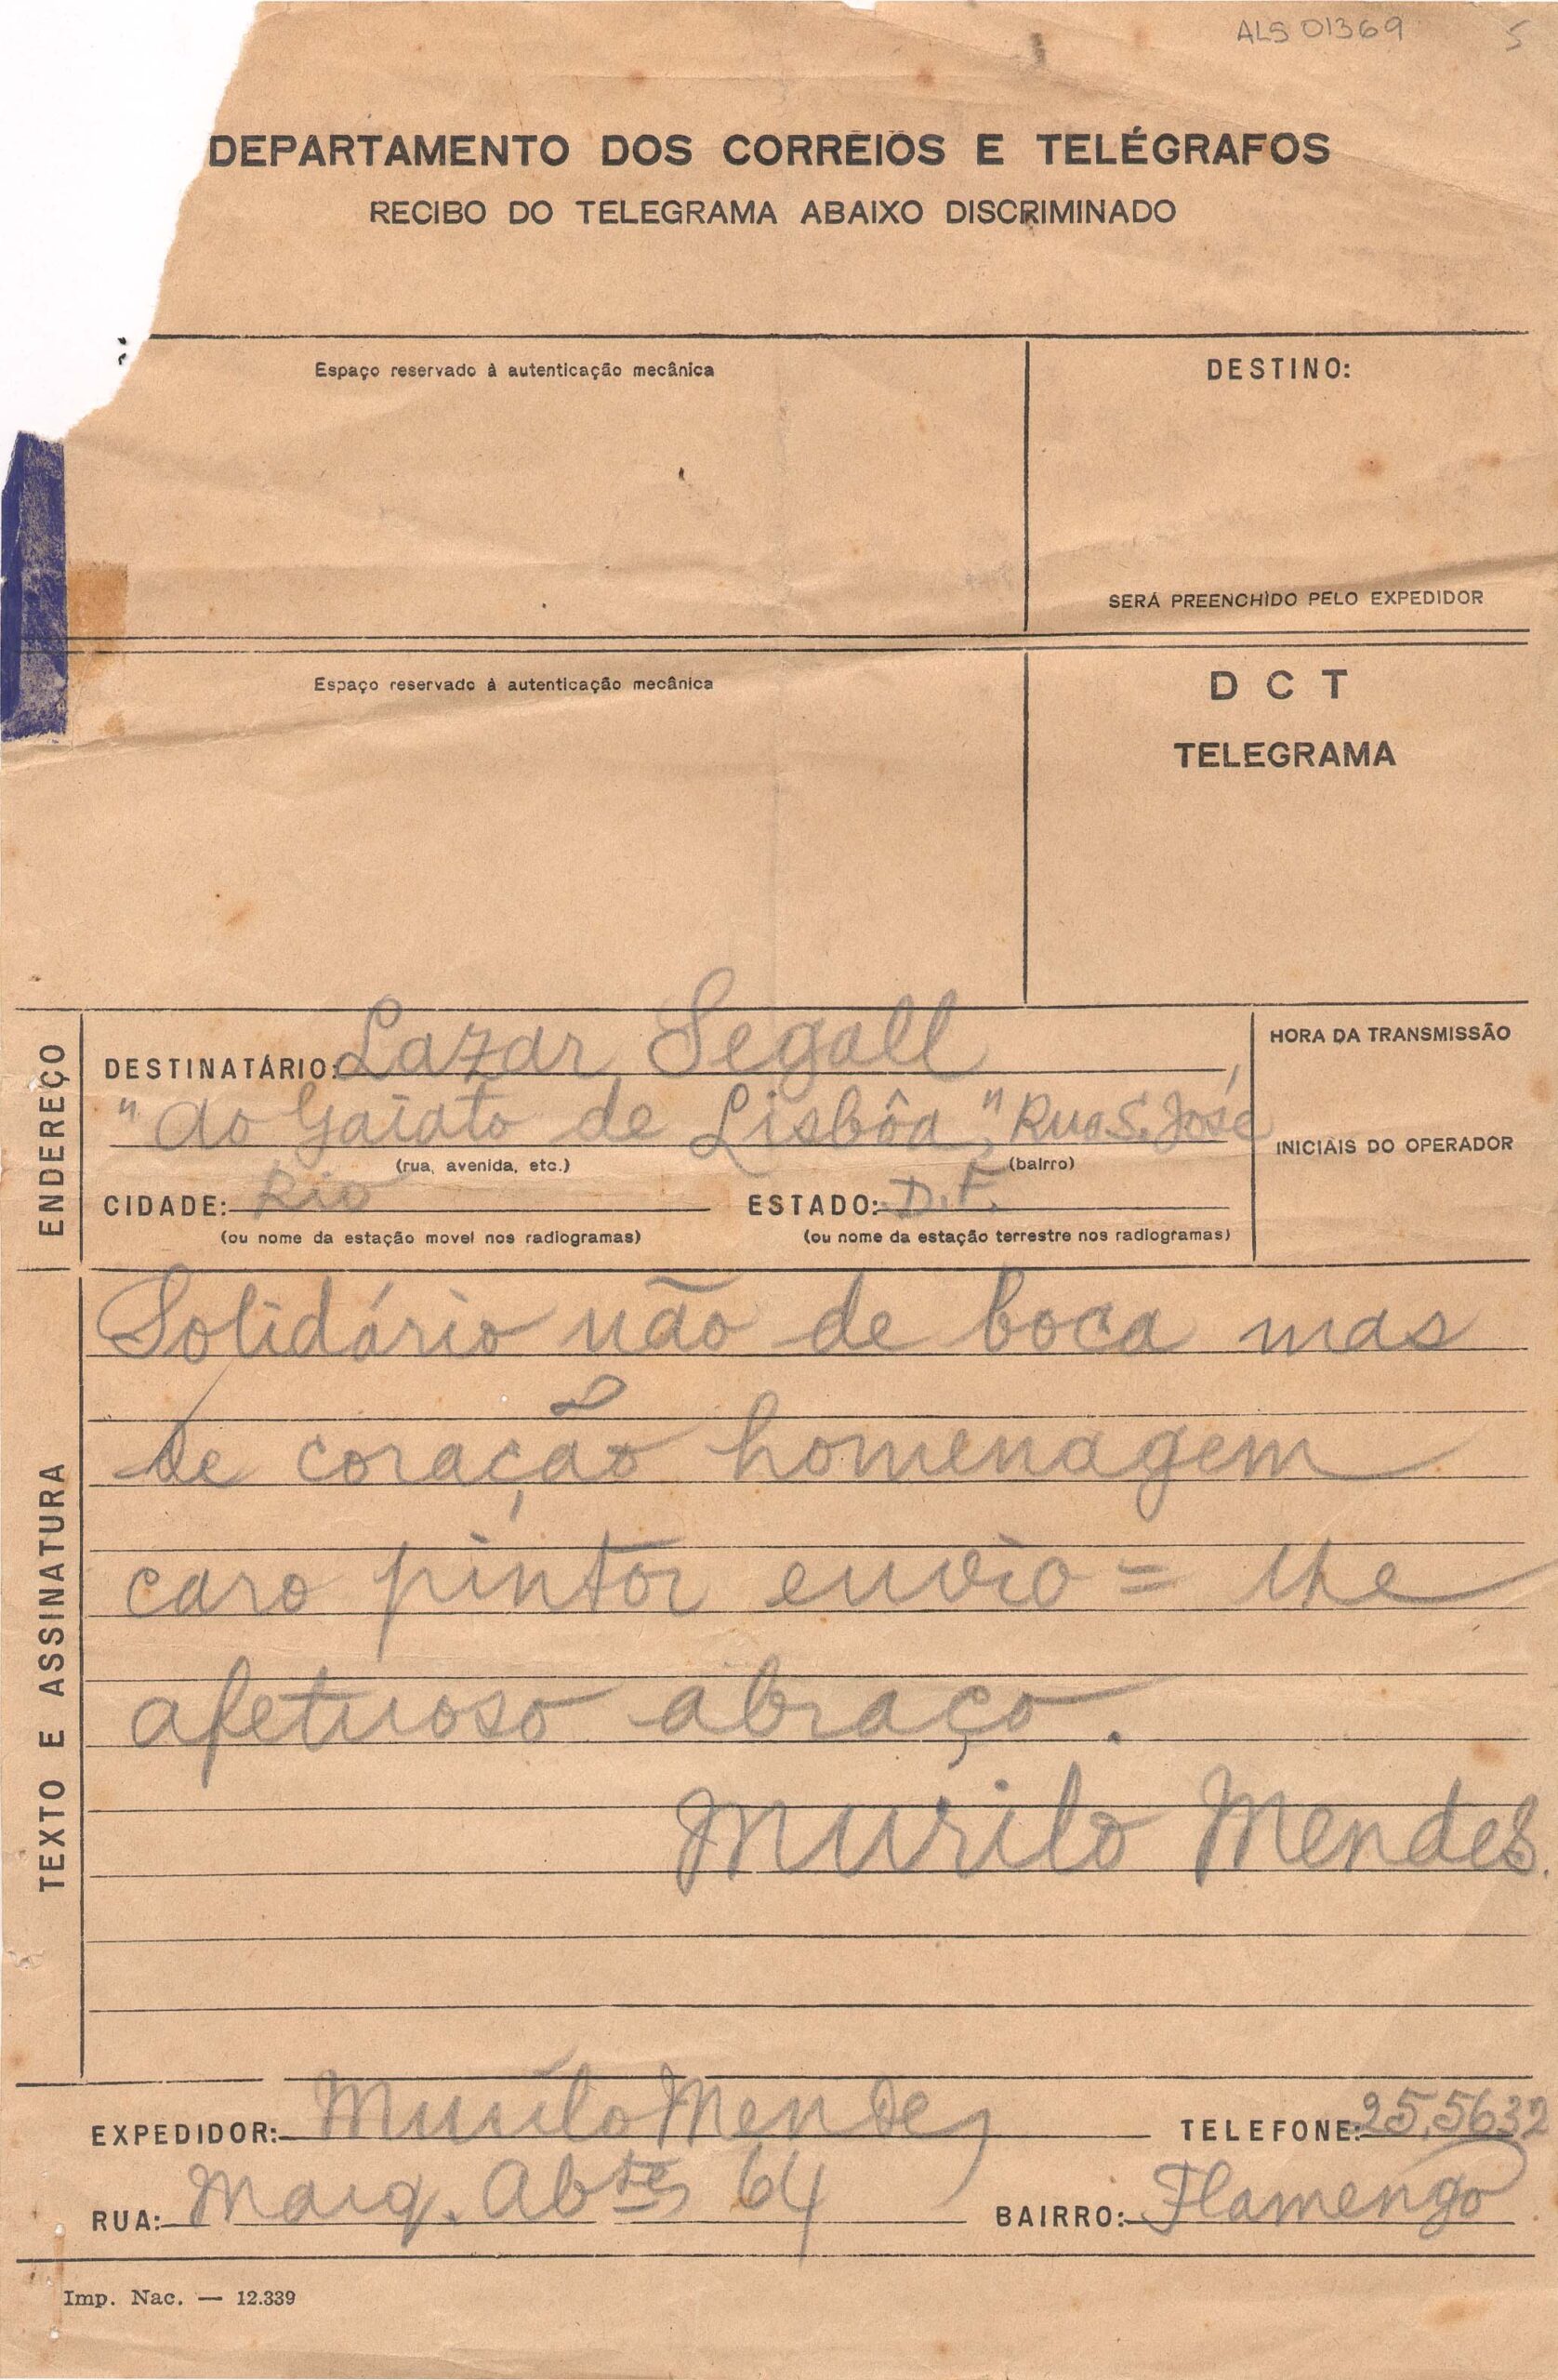 ALS 01369 5
DEPARTAMENTO DOS CORREIOS E TELÉGRAFOS
RECIBO DO TELEGRAMA ABAIXO DISCRIMINADO
Espaço reservado à autenticação mecânica
DESTINO:
SERÁ PREENCHIDO PELO EXPEDIDOR
Espaço reservado à autenticação mecânica
D C T
TELEGRAMA
ENDEREÇO
DESTINATÁRIO: Lazar Segall,
HORA DA TRANSMISSÃO
"Ao Gaiato de Lisbôa", Rua S. José
INICIAIS DO OPERADOR
(rua, avenida, etc.) (bairro)
CIDADE: Rio ESTADO: D.F.
(ou nome da estação movel nos radiogramas) (ou nome da estação terrestre nos radiogramas)
TEXTO E ASSINATURA
Solidário não de boca mas
de coração homenagem
caro pintor envio = lhe
afetuoso abraço.
Murilo Mendes.
EXPEDIDOR: Murilo Mendes TELEFONE: 25.5632
RUA: Marq. Abtes 64 BAIRRO: Flamengo
Imp. Nac. — 12.339